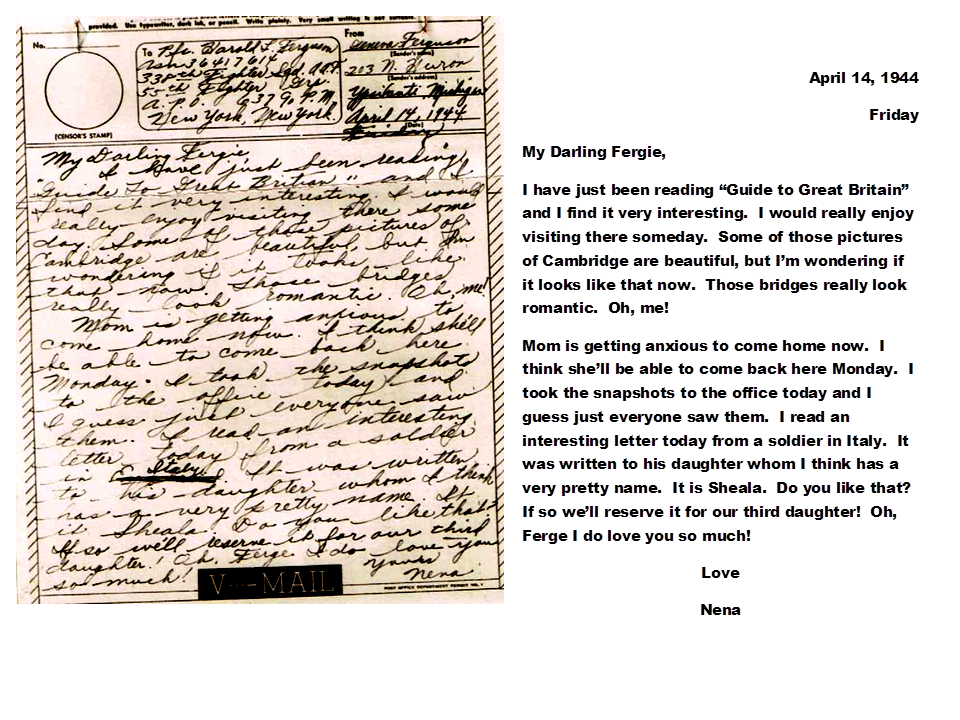 provided. Use typewriter, dark ink, or pencil. Write plainly. Very small writing is not suitable.
No.
(CENSOR'S STAMP)
To Pfc. Harold L. Ferguson
Asn 36417614
338th Fighter Sqd. A.A.F.
55th Fighter Grp.
A.P.O. 637 % P.M.
New York, New York.
From
Geneva Ferguson
(Sender's name)
203 N. Huron
(Sender's address)
Ypsilanti, Michigan
April 14, 1944
(Date)
My Darling Fergie,
I have just been reading
"Guide To Great Britian" and I
find it very interesting. I would
really enjoy visiting there some
day. Some of those pictures of
Cambridge are beautiful, but I'm
wondering if it looks like
that now. Those bridges
really look romantic. Oh, me!
Mom is getting anxious to
come home now. I think she'll
be able to come back here
Monday. I took the snapshots
to the office today and
I guess just everyone saw
them. I read an interesting
letter today from a soldier
in Italy. It was written
to his daughter whom I think
has a very pretty name. It
is Sheala. Do you like that?
If so we'll reserve it for our third
daughter! Oh, Ferge I do love you
so much!
Yours
Nena
V···—MAIL
POST OFFICE DEPARTMENT PERMIT NO. 1
April 14, 1944
Friday
My Darling Fergie,
I have just been reading “Guide to Great Britain”
and I find it very interesting.  I would really enjoy
visiting there someday.  Some of those pictures
of Cambridge are beautiful, but I’m wondering if
it looks like that now.  Those bridges really look
romantic.  Oh, me!
Mom is getting anxious to come home now.  I
think she’ll be able to come back here Monday.  I
took the snapshots to the office today and I
guess just everyone saw them.  I read an
interesting letter today from a soldier in Italy.  It
was written to his daughter whom I think has a
very pretty name.  It is Sheala.  Do you like that?
If so we’ll reserve it for our third daughter!  Oh,
Ferge I do love you so much!
Love
Nena